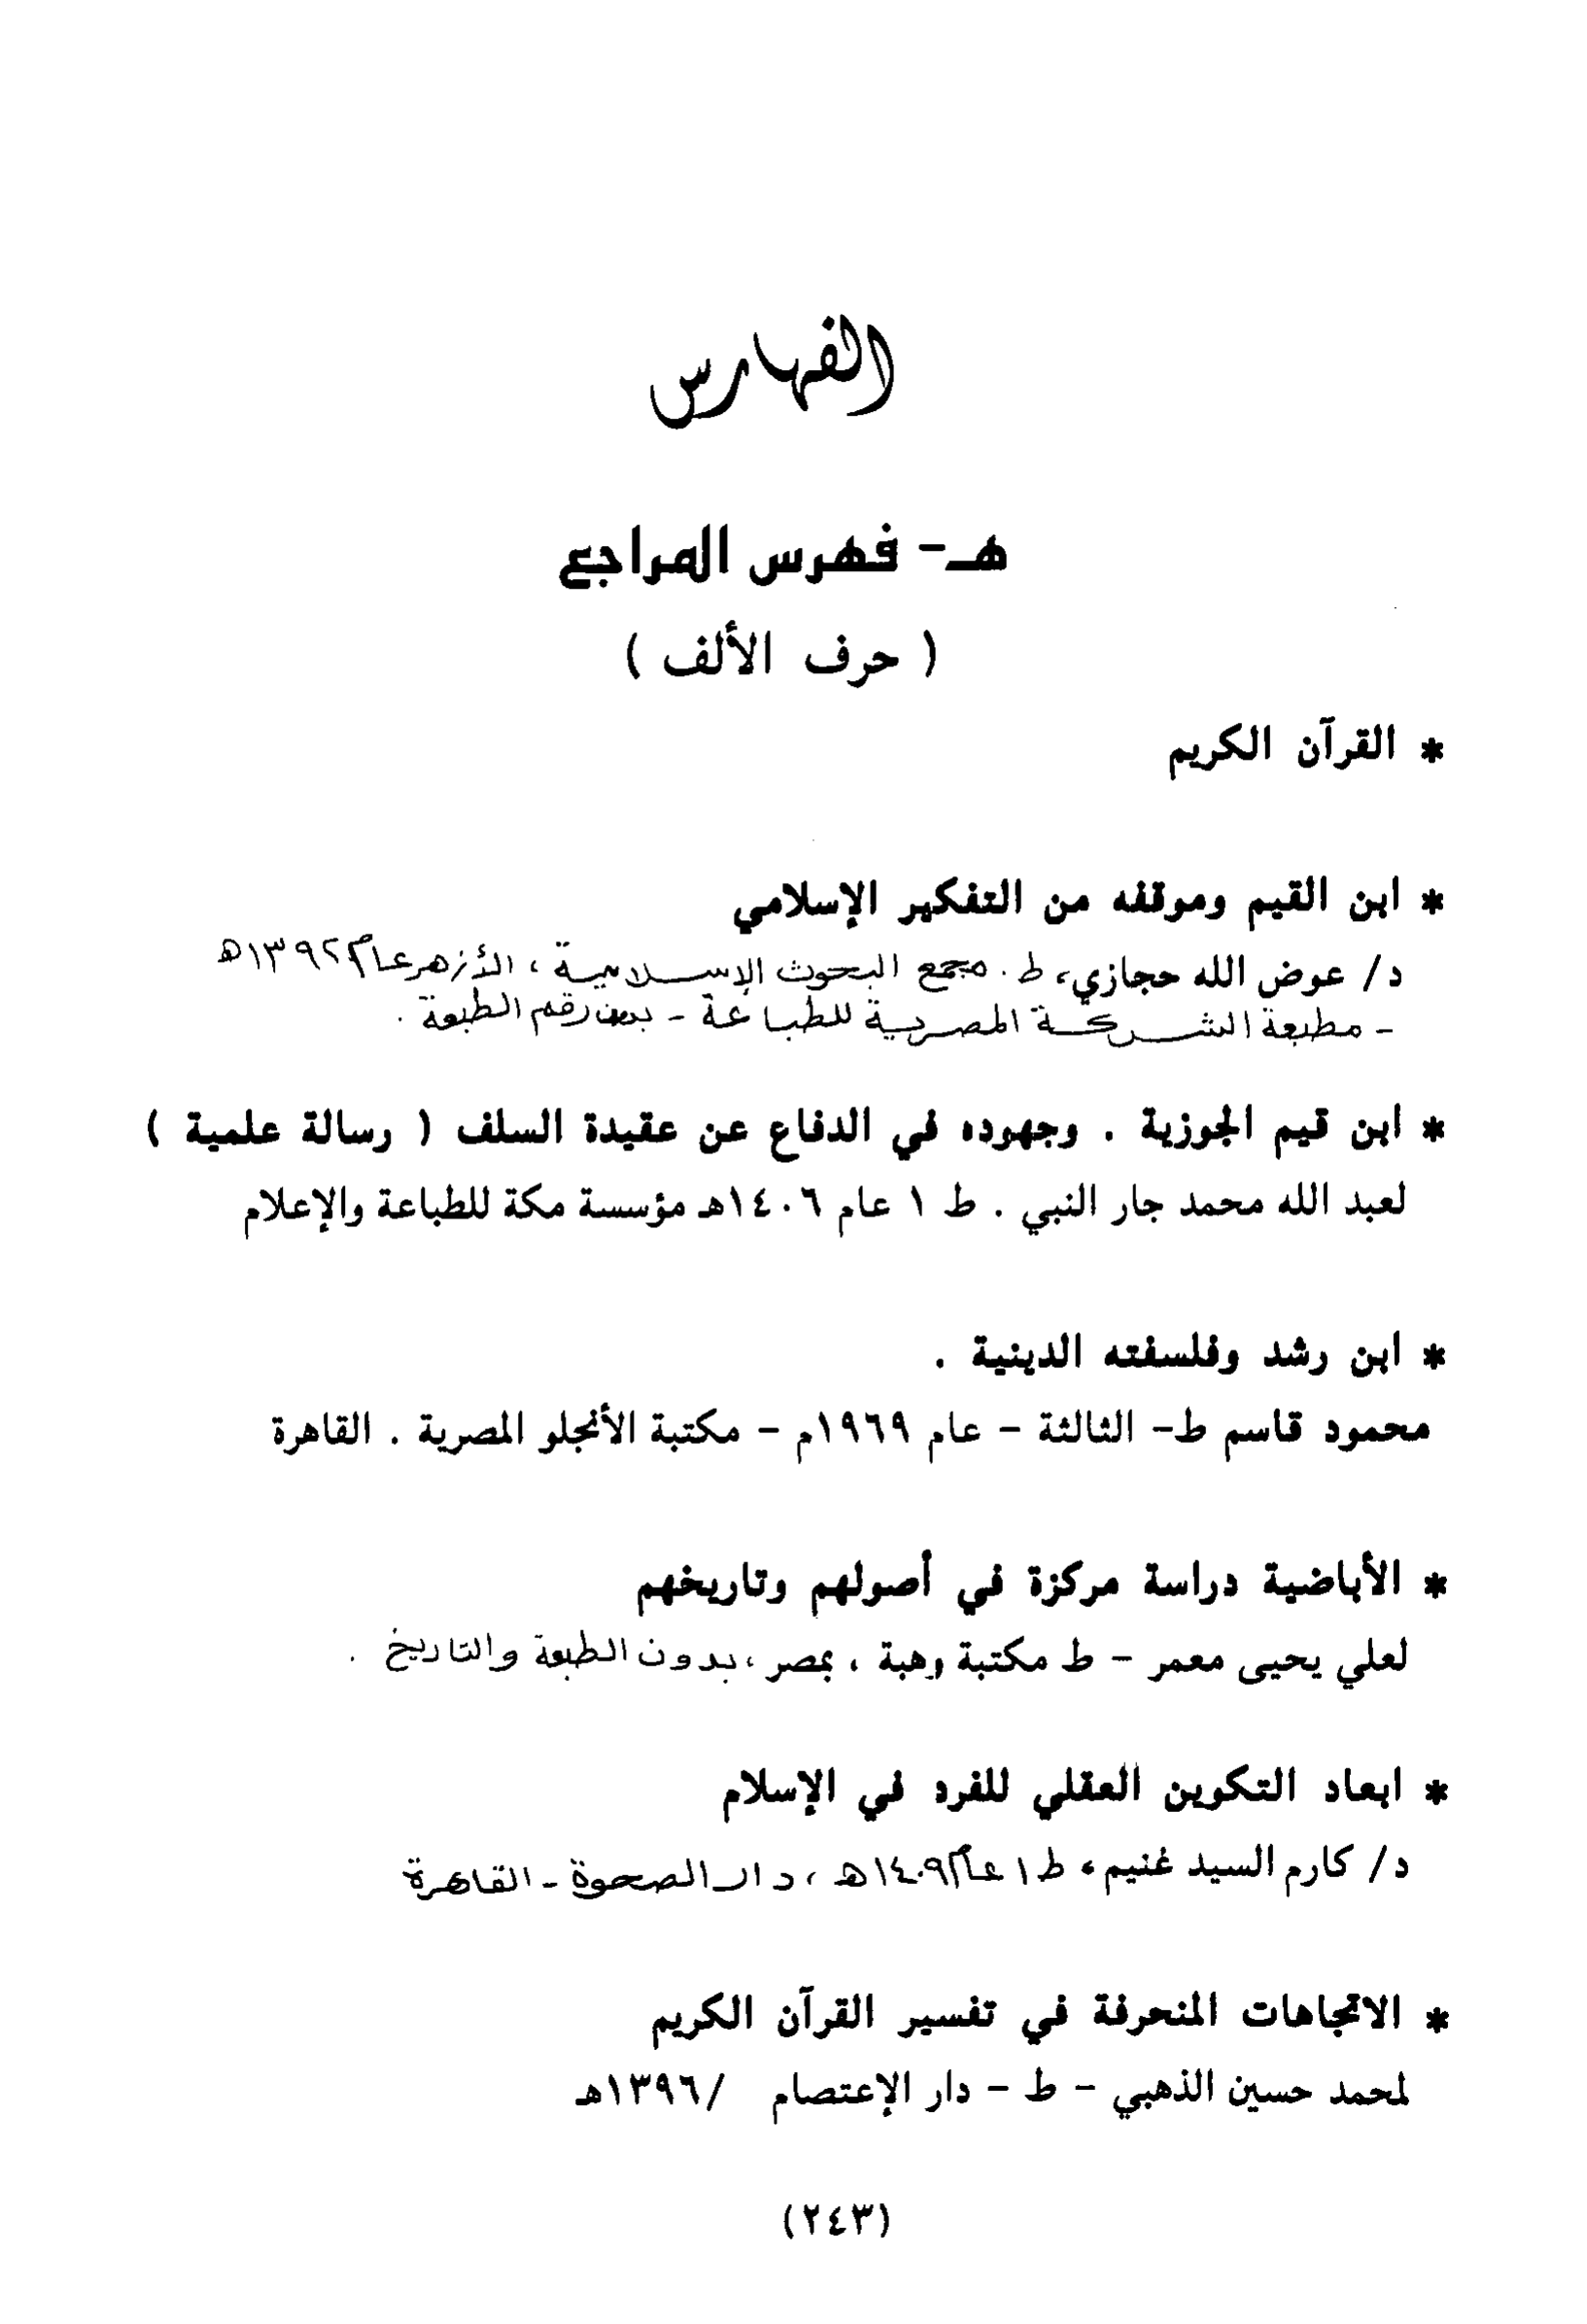 الفهارس
هـ - فهرس المراجع
( حرف الألف )
* القرآن الكريم
* ابن القيم وموقفه من التفكير الإسلامي
د/ عوض الله حجازي، ط . مجمع البحوث الإسلامية ، الأزهر عام ١٣٩٢ه
- مطبعة الشركة المصرية للطباعة - بدون رقم الطبعة .
* ابن قيم الجوزية . وجهوده في الدفاع عن عقيدة السلف ( رسالة علمية )
لعبد الله محمد جار النبي . ط ١ عام ١٤٠٦هـ مؤسسة مكة للطباعة والإعلام
* ابن رشد وفلسفته الدينية .
محمود قاسم ط- الثالثة - عام ١٩٦٩م - مكتبة الأنجلو المصرية . القاهرة
* الأباضية دراسة مركزة في أصولهم وتاريخهم
لعلي يحيى معمر - ط مكتبة وهبة ، بمصر ، بدون الطبعة والتاريخ .
* ابعاد التكوين العقلي للفرد في الإسلام
د/ كارم السيد غنيم، ط ١ عام ١٤٠٩ه ، دار الصحوة - القاهرة
* الاتجاهات المنحرفة في تفسير القرآن الكريم
لمحمد حسين الذهبي - ط - دار الإعتصام /١٣٩٦هـ
(٢٤٣)